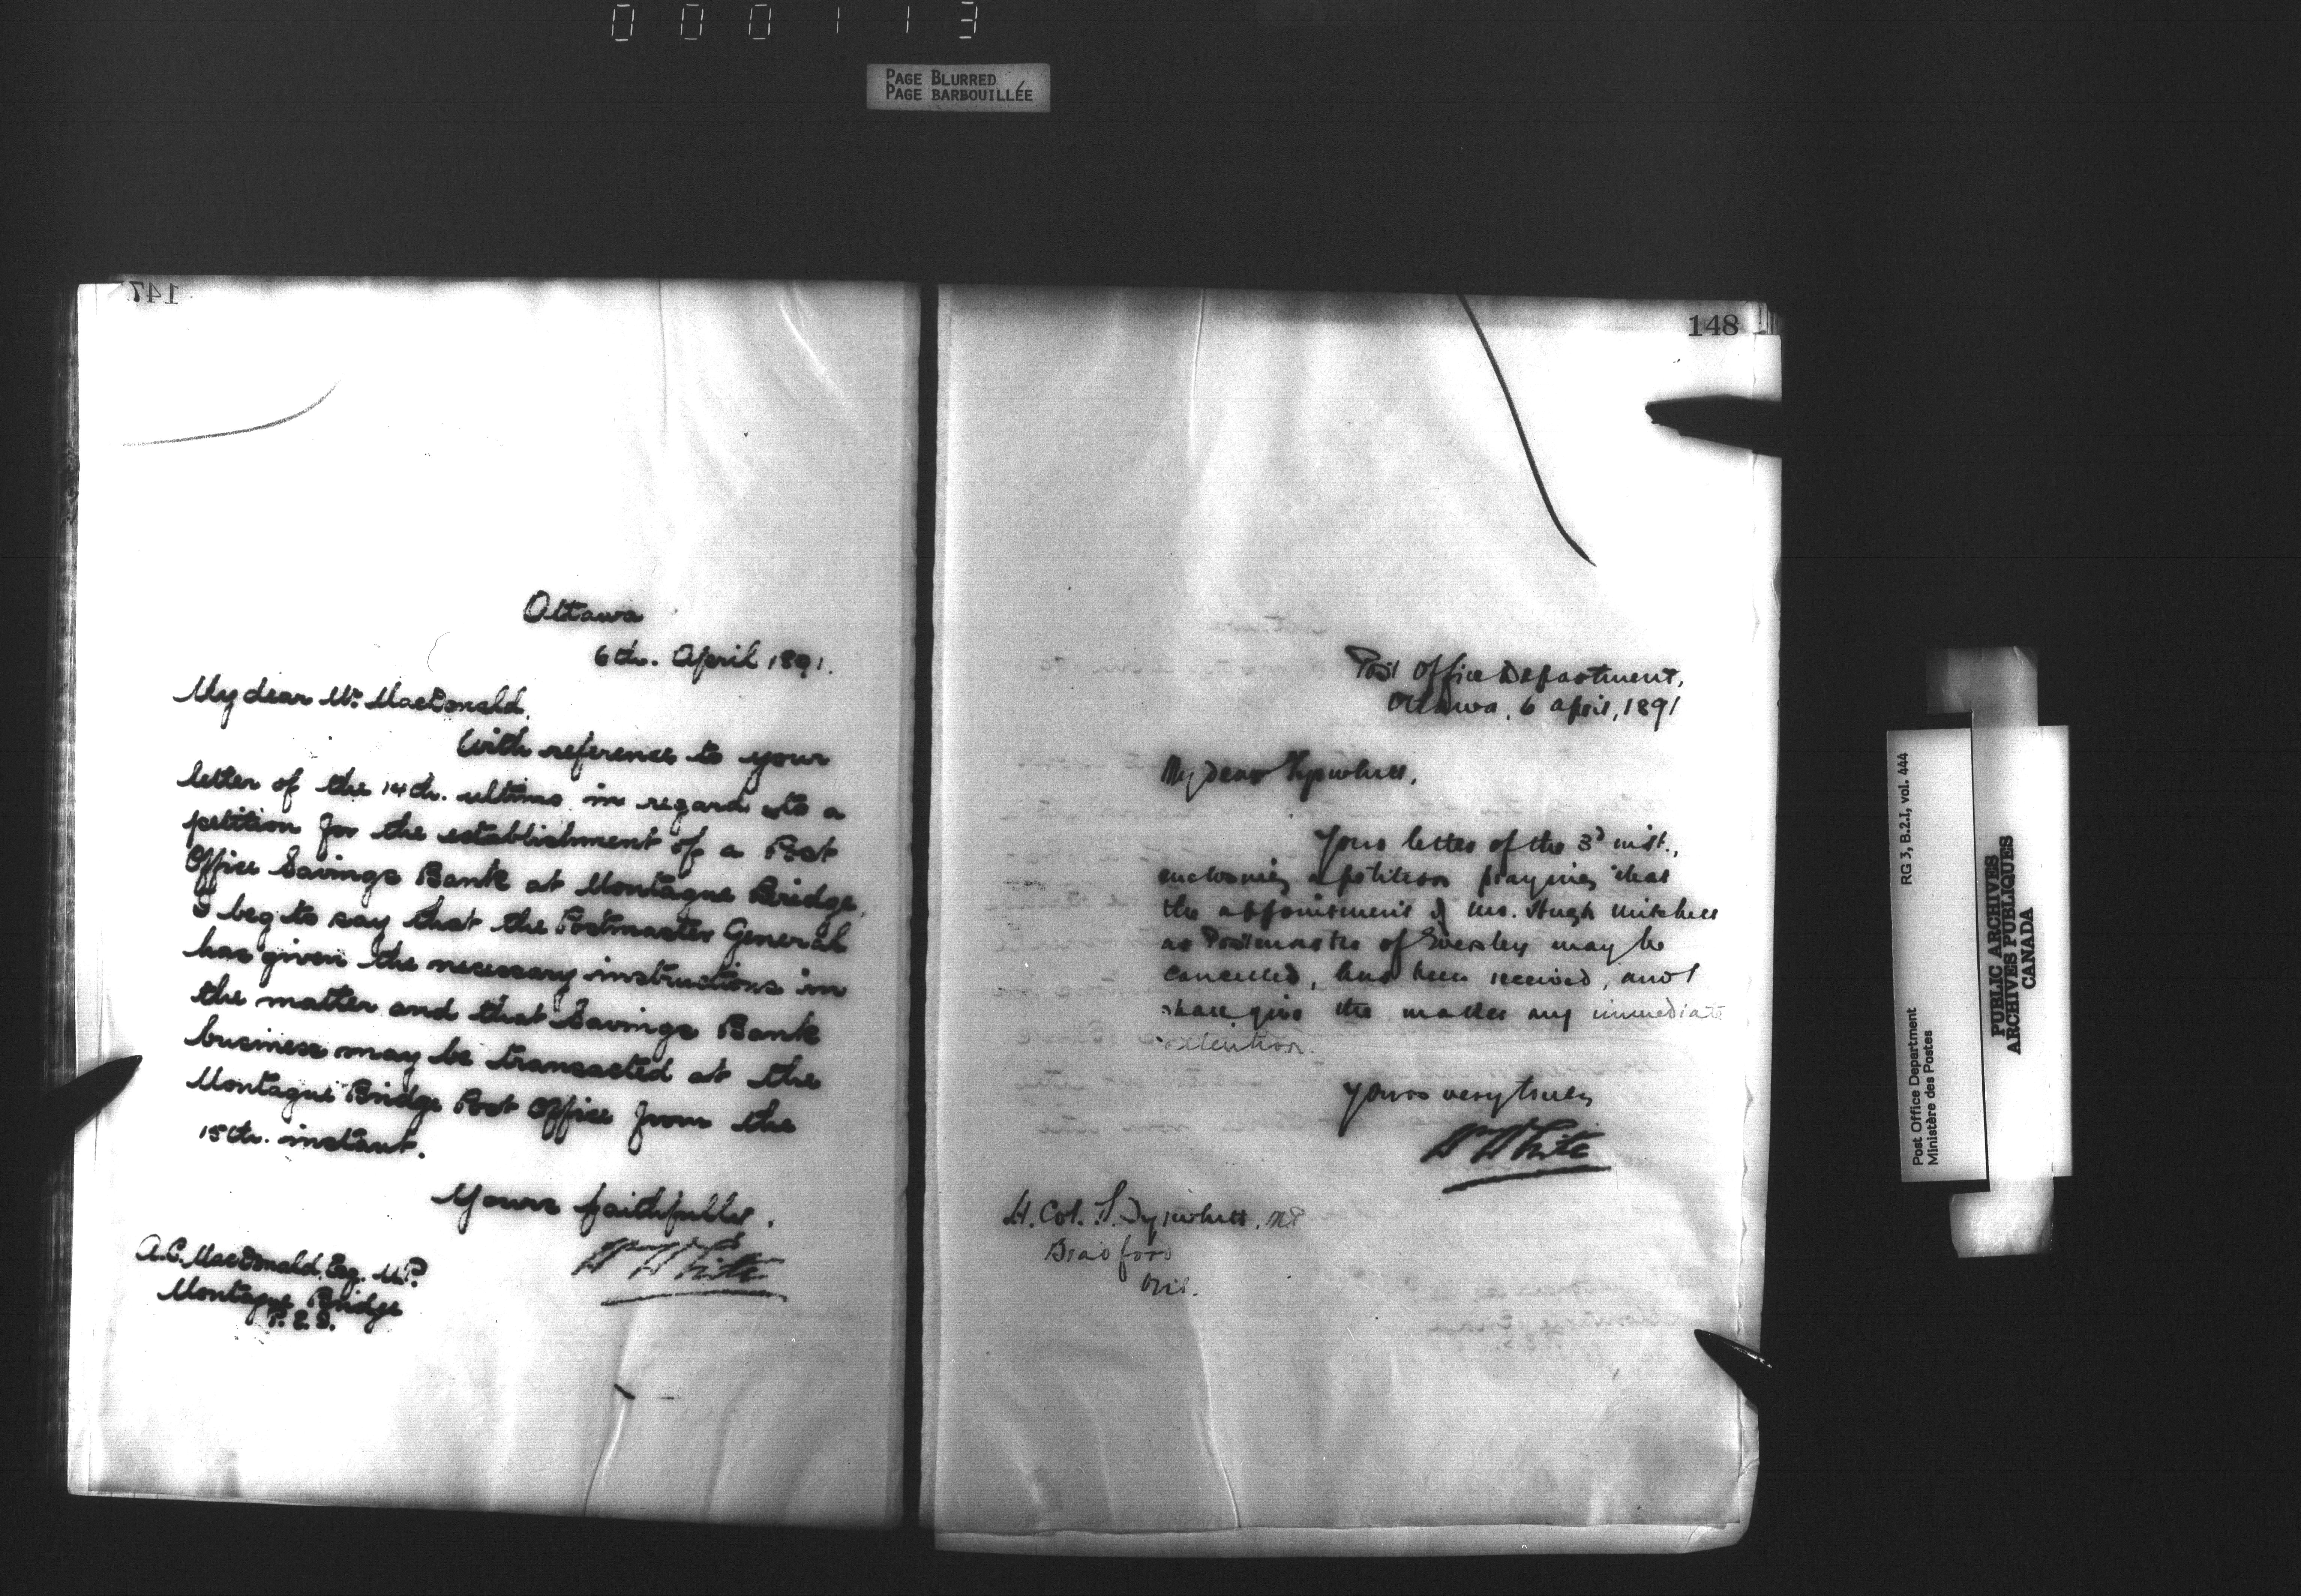 000113
PAGE BLURRED
PAGE BARBOUILLÉE
147
Ottawa
6th. April 1891.
My dear Mr. MacDonald,
With reference to your
letter of the 14th. ultimo in regard to a
petition for the establishment of a Post
Office Savings Bank at Montague Bridge,
I beg to say that the Postmaster General
has given the necessary instructions in
the matter and that Savings Bank
business may be transacted at the
Montague Bridge Post Office from the
15th. instant.
Yours faithfully,
Wm White
A.C. MacDonald, Esq. M.P.
Montague Bridge
P.E.I.
148
Post Office Department,
Ottawa, 6 April, 1891
My dear Tyrwhitt,
Your letter of the 3d inst.,
enclosing a petition praying that
the appointment of Mr. Hugh Mitchell
as Postmaster of may be
cancelled, has been received, and I
shall give the matter my immediate
attention.
Yours very truly
Wm White
Lt. Col. Tyrwhitt, MP
Bradford
Ont.
Post Office Department
Ministère des Postes
RG 3, B.2.I, vol. 444
PUBLIC ARCHIVES
ARCHIVES PUBLIQUES
CANADA